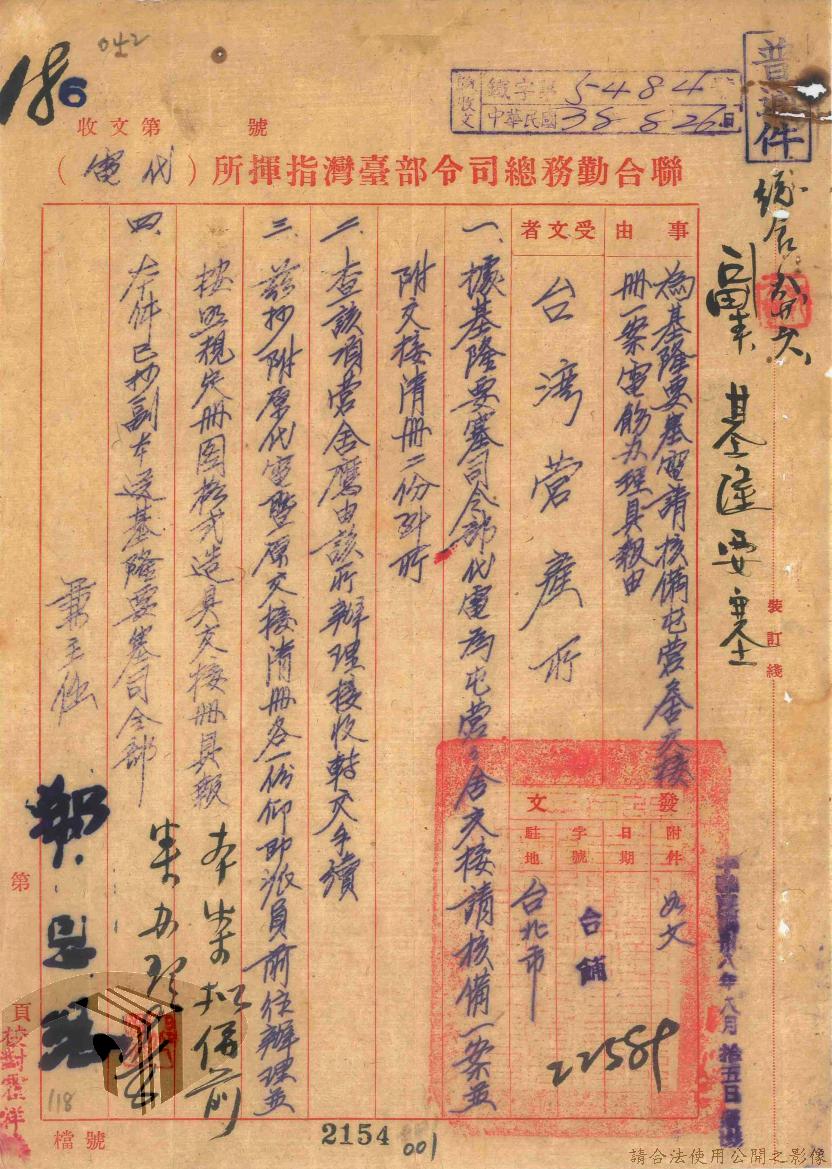 042
186
普通件
鐵字第5484號
中華民國38 8 26日
收文第 號
聯合勤務總司令部臺灣指揮所（代電）
副本 基隆要塞
裝訂線
事由
為基隆要塞電請核備屯營營舍交接
冊一案電飭办理具報由
受文者
台湾营產所
發文
附件 如文
日期
字號 台舖 22589
駐地 台北市
一、據基隆要塞司令部代電為屯營營舍交接請核備一案並
附交接清冊二份到所
二、查該項营舍應由該所辦理接收轉交手續
三、茲抄附原代電暨原交接清冊各一份仰即派員前往辦理並
按照規定冊图格式造具交接冊具報
四、本件已抄副本送基隆要塞司令部
兼主任
本案擬併前
案办理
第 頁
校對
檔號
2154
001
118
請合法使用公開之影像